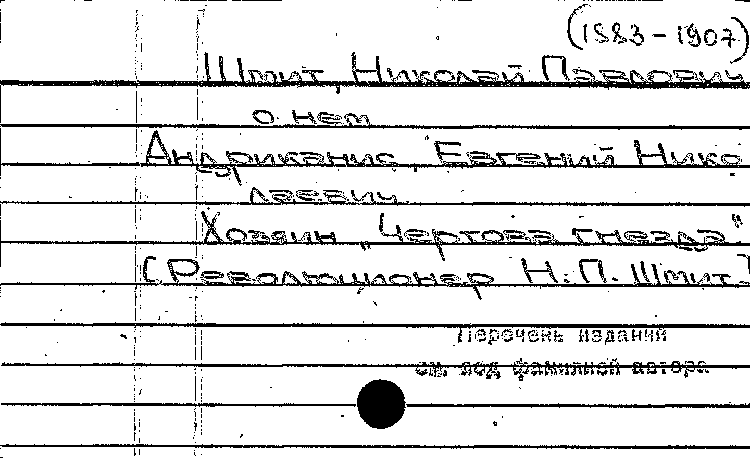 (1883-1907)
Шмит, Николай Павлович
о нем
Андриканис, Евгений Нико
лаевич
Хозяин „Чертова гнезда".
[Революционер Н. П. Шмит.]
Перечень изданий
см. под фамилией автора